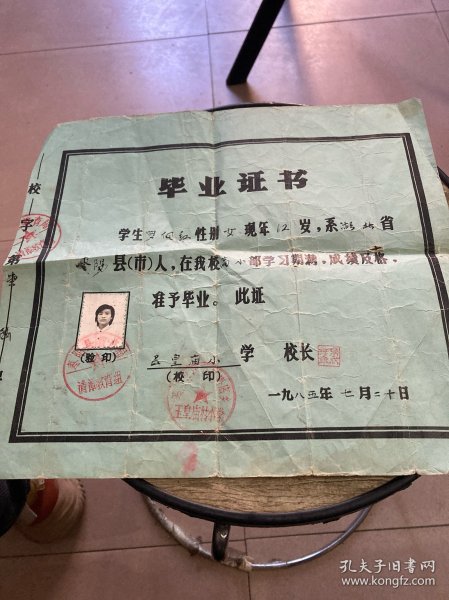 毕业证书
学生罗 红性别女现年12岁,系湖北省
县(市)人,在我校 小部学习期满,成绩及格,
准予毕业。此证
(验印)
玉皇庙小学 校长
(校印)
玉皇庙
一九八五年七月二十日
校
字
第
孔夫子旧书网
www.kongfz.com